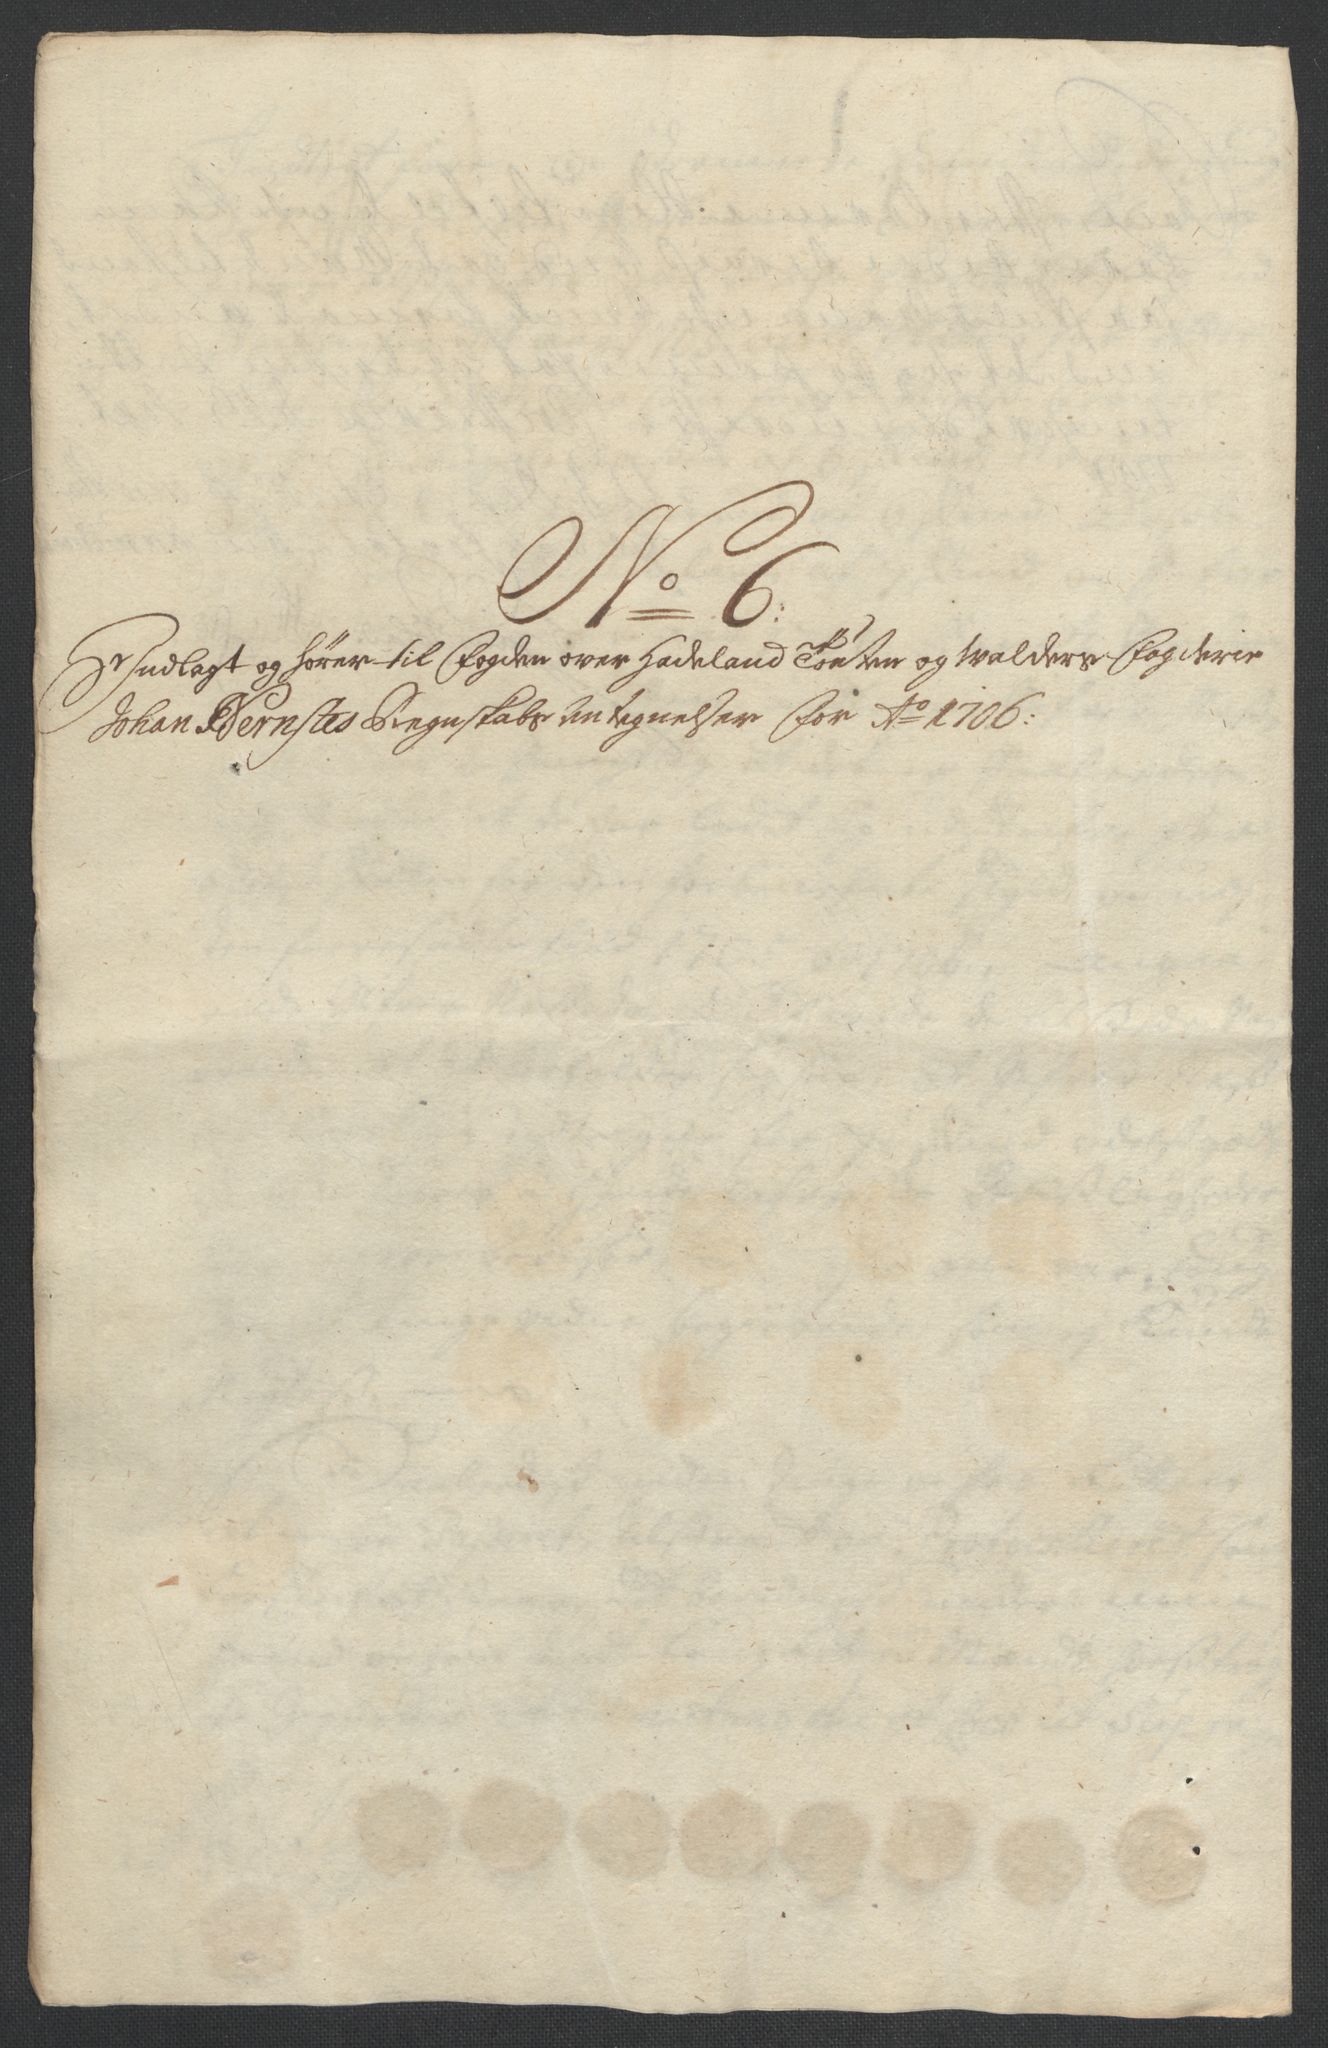 No 6:
Er Indlagt og hører til Fogden over Hadeland Toten og Walders Fogderie
Johan Bernstes Regnskabs Antegnelser for Ao 1706: